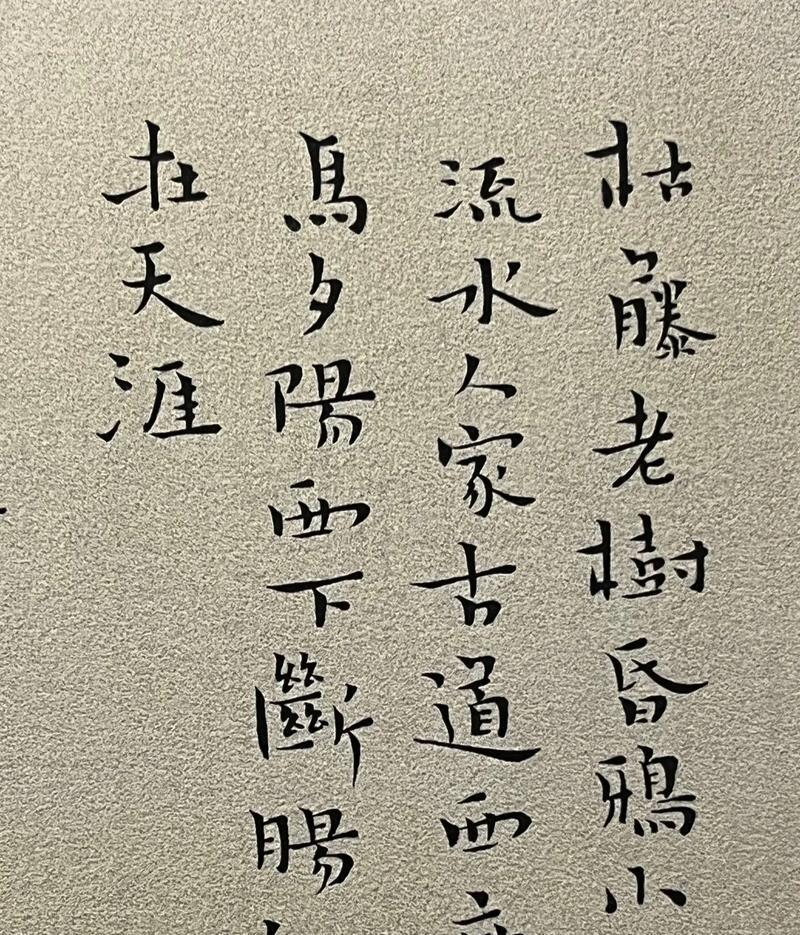 枯藤老樹昏鴉小
流水人家古道西
馬夕陽西下斷腸
在天涯